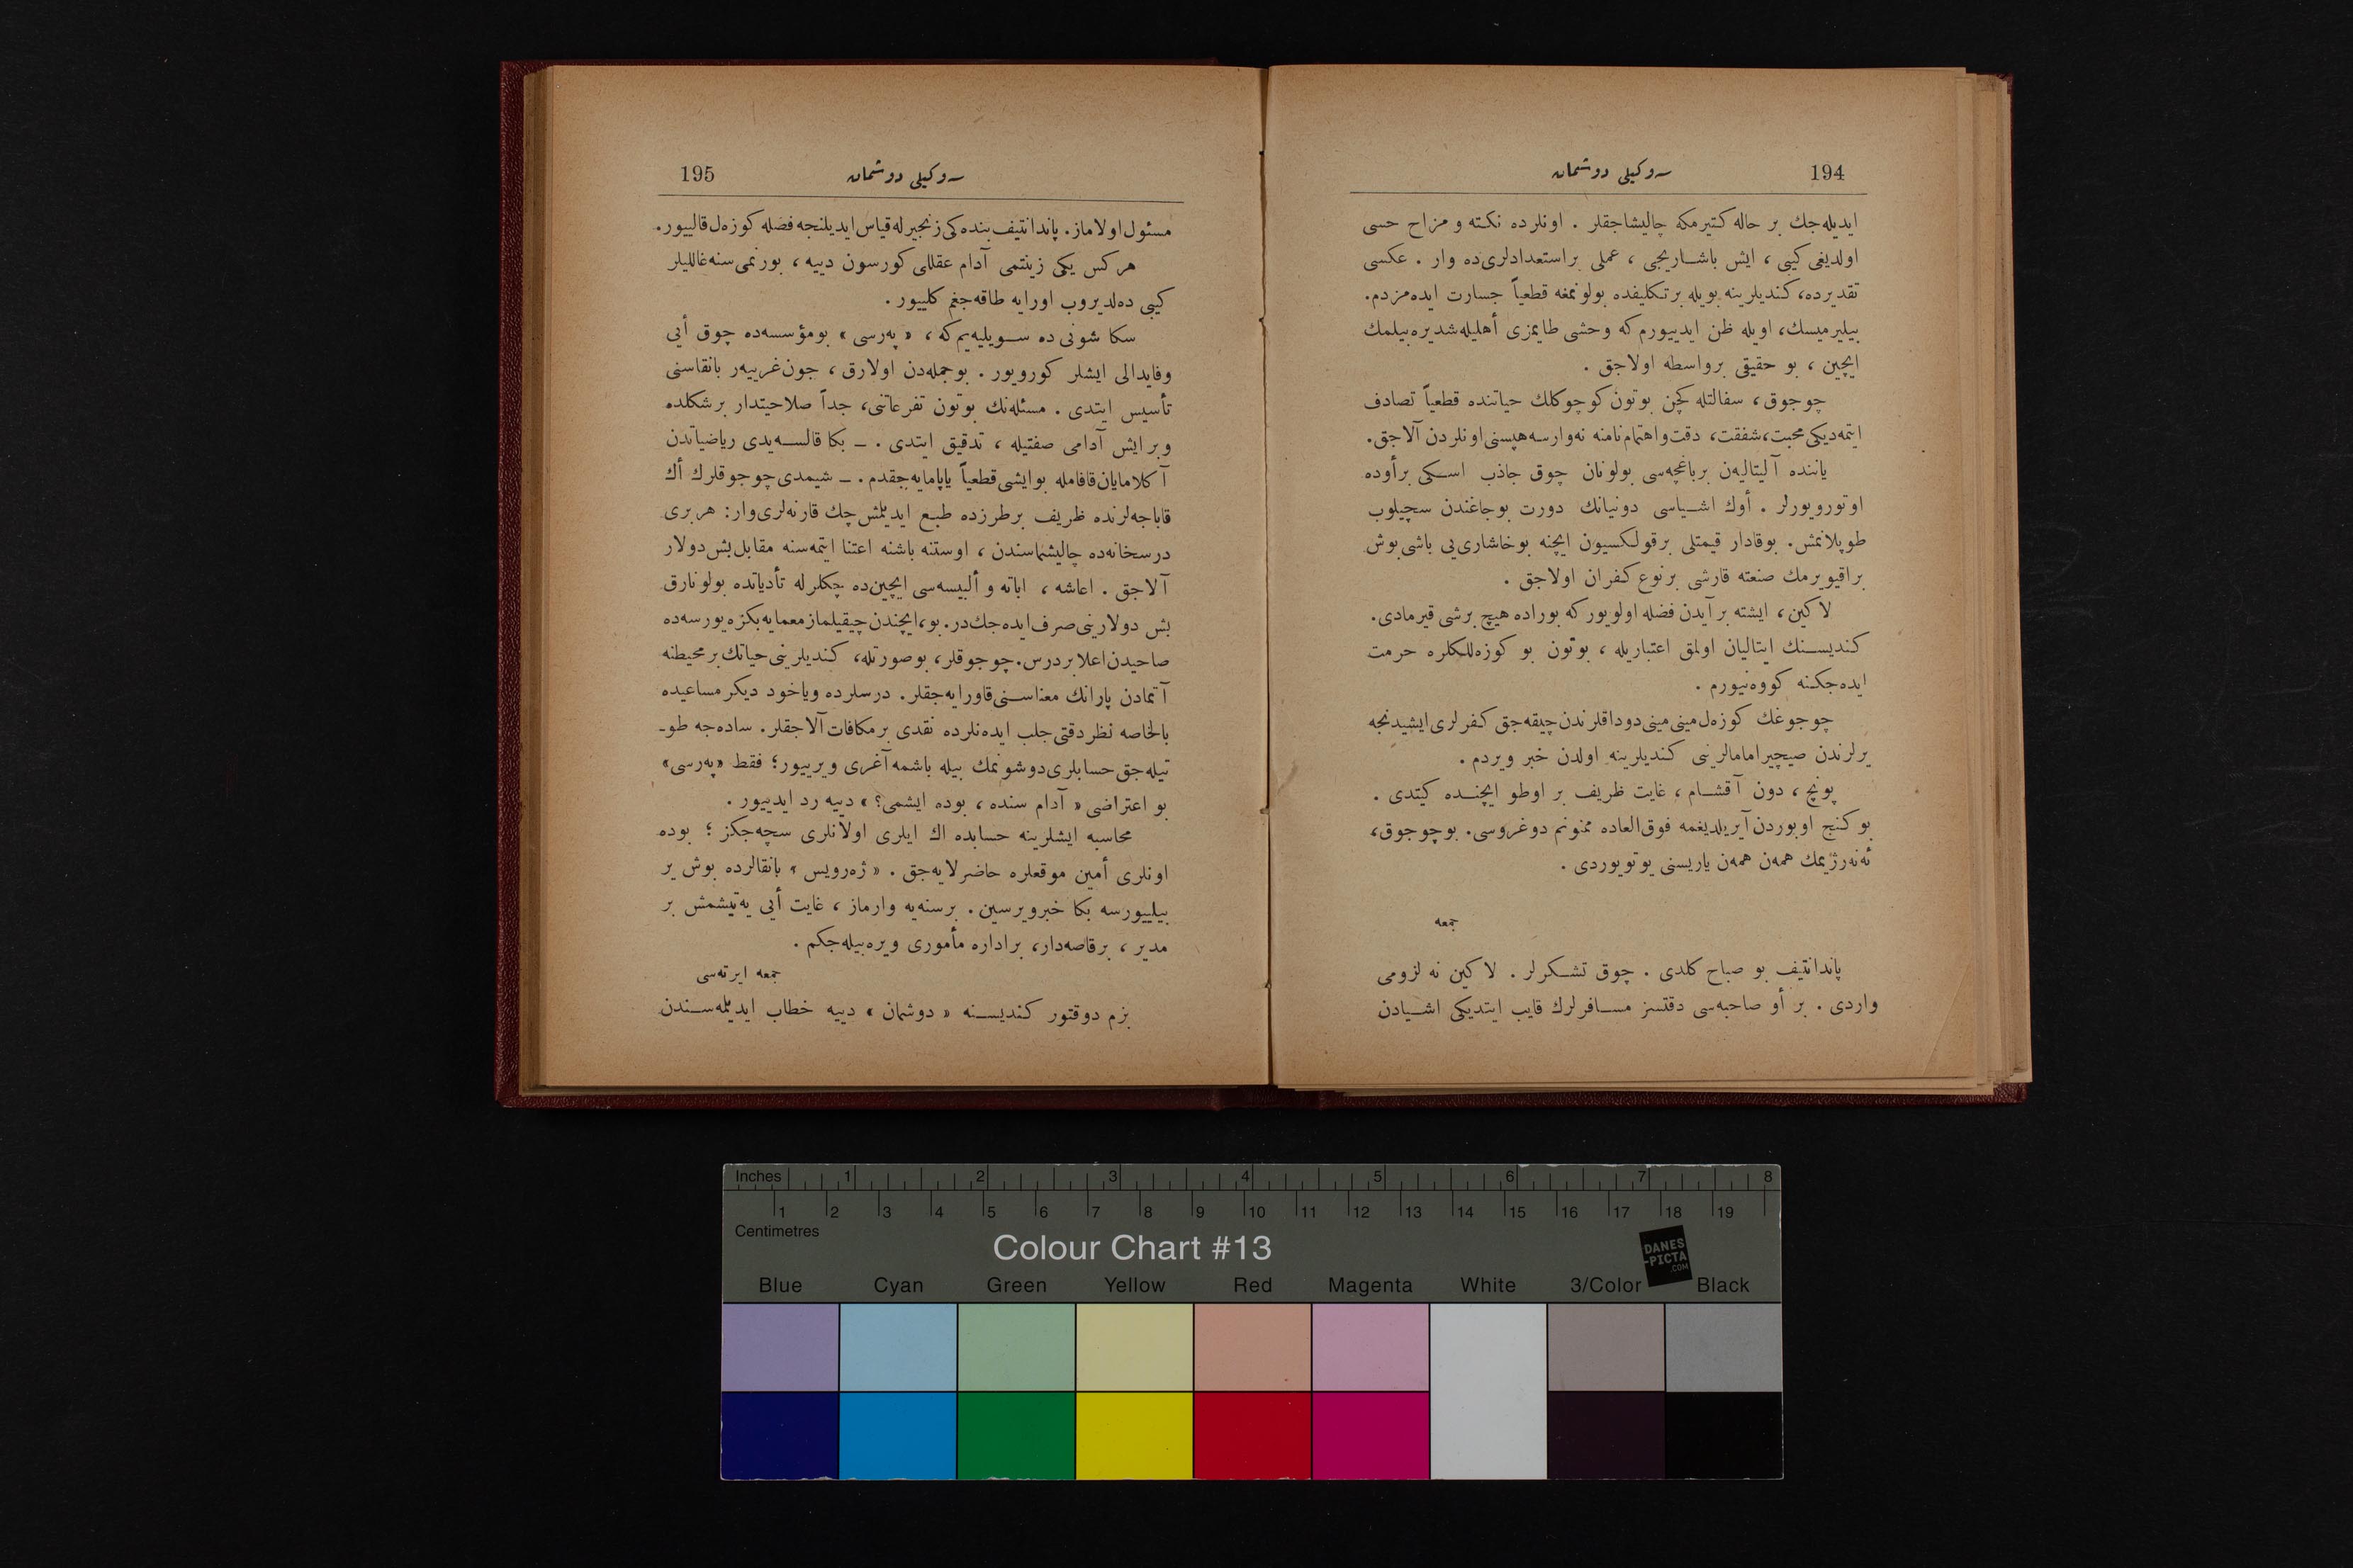 194
سه‌وكیلی دوشمان
ایدیله‌جك بر حاله كتیرمكه چالیشاجقلر . اونلرده نكته و مزاح حسی
اولدیغی كیبی ، ایش باشاریجی ، عملی براستعدادلری‌ده وار . عكسی
تقدیرده، كندیلرینه بویله برتكلیفده بولونمغه قطعیاً جسارت ایده‌مزدم.
بیلیرمیسك، اویله ظن ایدییورم كه وحشی طایمزی أهلیله‌شدیره‌بیلمك
ایچین ، بو حقیقی برواسطه اولاجق .
چوجوق، سفالتله كچن بوتون كوچوكلك حیاتنده قطعیاً تصادف
ایتمه‌دیكی محبت، شفقت، دقت واهتمام نامنه نه‌وارسه هپسنی اونلردن آلاجق.
یاننده آلیتالیه‌ن برباغچه‌سی بولونان چوق جاذب اسكی برأوده
اوتورویورلر . أوك اشیاسی دونیانك دورت بوجاغندن سچیلوب
طوپلانمش. بوقادار قیمتلی برقولكسیون ایچنه بوخاشاری‌یی باشی بوش
براقیویرمك صنعته قارشی برنوع كفران اولاجق .
لاكین، ایشته برآیدن فضله اولویور كه بوراده هیچ برشی قیرمادی.
كندیسنك ایتالیان اولمق اعتباریله ، بوتون بو كوزه‌للكلره حرمت
ایده‌جكنه كووه‌نیورم .
چوجوغك كوزه‌ل مینی مینی دوداقلرندن چیقه‌جق كفرلری ایشیدنجه
یرلرندن صیچیرامامالرینی كندیلرینه اولدن خبر ویردم .
پونچ ، دون آقشام ، غایت ظریف بر اوطو ایچنده كیتدی .
بو كنج اوبوردن آیریلدیغمه فوق‌العاده ممنونم دوغروسی. بوچوجوق،
ئه‌نه‌رژیمك همه‌ن همه‌ن یاریسنی یوتویوردی .
جمعه
پاندانتیف بو صباح كلدی . چوق تشكرلر . لاكین نه لزومی
واردی . بر أو صاحبه‌سی دقتسز مسافرلرك قایب ایتدیكی اشیادن
195
سه‌وكیلی دوشمان
مسئول اولاماز. پاندانتیف بنده‌كی زنجیرله قیاس ایدیلنجه فضله كوزه‌ل قالییور.
هركس یكی زینتمی آدام عقللی كورسون دییه ، بورنمی سنه‌غاللیلر
كیبی ده‌لدیروب اورایه طاقه‌جغم كلییور .
سكا شونی ده سویلیه‌یم كه ، « په‌رسی » بومؤسسه‌ده چوق أیی
وفایدالی ایشلر كورویور . بوجمله‌دن اولارق ، جون غرییه‌ر بانقاسنی
تأسیس ایتدی . مسئله‌نك بوتون تفرعاتنی، جداً صلاحیتدار برشكلده
وبر ایش آدامی صفتیله ، تدقیق ایتدی . ــ بكا قالسه‌یدی ریاضیاتدن
آكلامایان قافامله بوایشی قطعیاً یاپامایه‌جقدم . ــ شیمدی چوجوقلرك أك
قاباجه‌لرنده ظریف برطرزده طبع ایدیلمش چك قارنه‌لری وار: هربری
درسخانه‌ده چالیشماسندن ، اوستنه باشنه اعتنا ایتمه‌سنه مقابل بش دولار
آلاجق . اعاشه ، اباته و ألبیسه‌سی ایچین‌ده چكلرله تأدیاتده بولونارق
بش دولارینی صرف ایده‌جك‌در. بو، ایچندن چیقیلماز معمایه بكزه‌یورسه‌ده
صاحیدن اعلا بر درس. چوجوقلر، بوصورتله، كندیلرینی حیاتك برمحیطنه
آتمادن پارانك معناسنی قاورایه‌جقلر. درسلرده ویاخود دیكر مساعیده
بالخاصه نظر دقتی جلب ایده‌نلرده نقدی برمكافات آلاجقلر. ساده‌جه طو-
تیله‌جق حسابلری دوشونمك بیله باشمه آغری ویرییور؛ فقط «په‌رسی»
بو اعتراضی « آدام سنده ، بوده ایشمی؟ » دییه رد ایدییور .
محاسبه ایشلرینه حسابده اك ایلری اولانلری سچه‌جكز ؛ بوده
اونلری أمین موقعلره حاضرلایه‌جق . « ژه‌رویس » بانقالرده بوش یر
بیلییورسه بكا خبرویرسین. برسنه‌یه وارماز ، غایت أیی یه‌تیشمش بر
مدیر ، برقاصه‌دار، براداره مأموری ویره‌بیله‌جكم .
جمعه ایرته‌سی
بزم دوقتور كندیسنه « دوشمان » دییه خطاب ایدیلمه‌سندن
Inches 1 2 3 4 5 6 7 8
1 2 3 4 5 6 7 8 9 10 11 12 13 14 15 16 17 18 19
Centimetres
Colour Chart #13
DANES
-PICTA
.COM
Blue Cyan Green Yellow Red Magenta White 3/Color Black